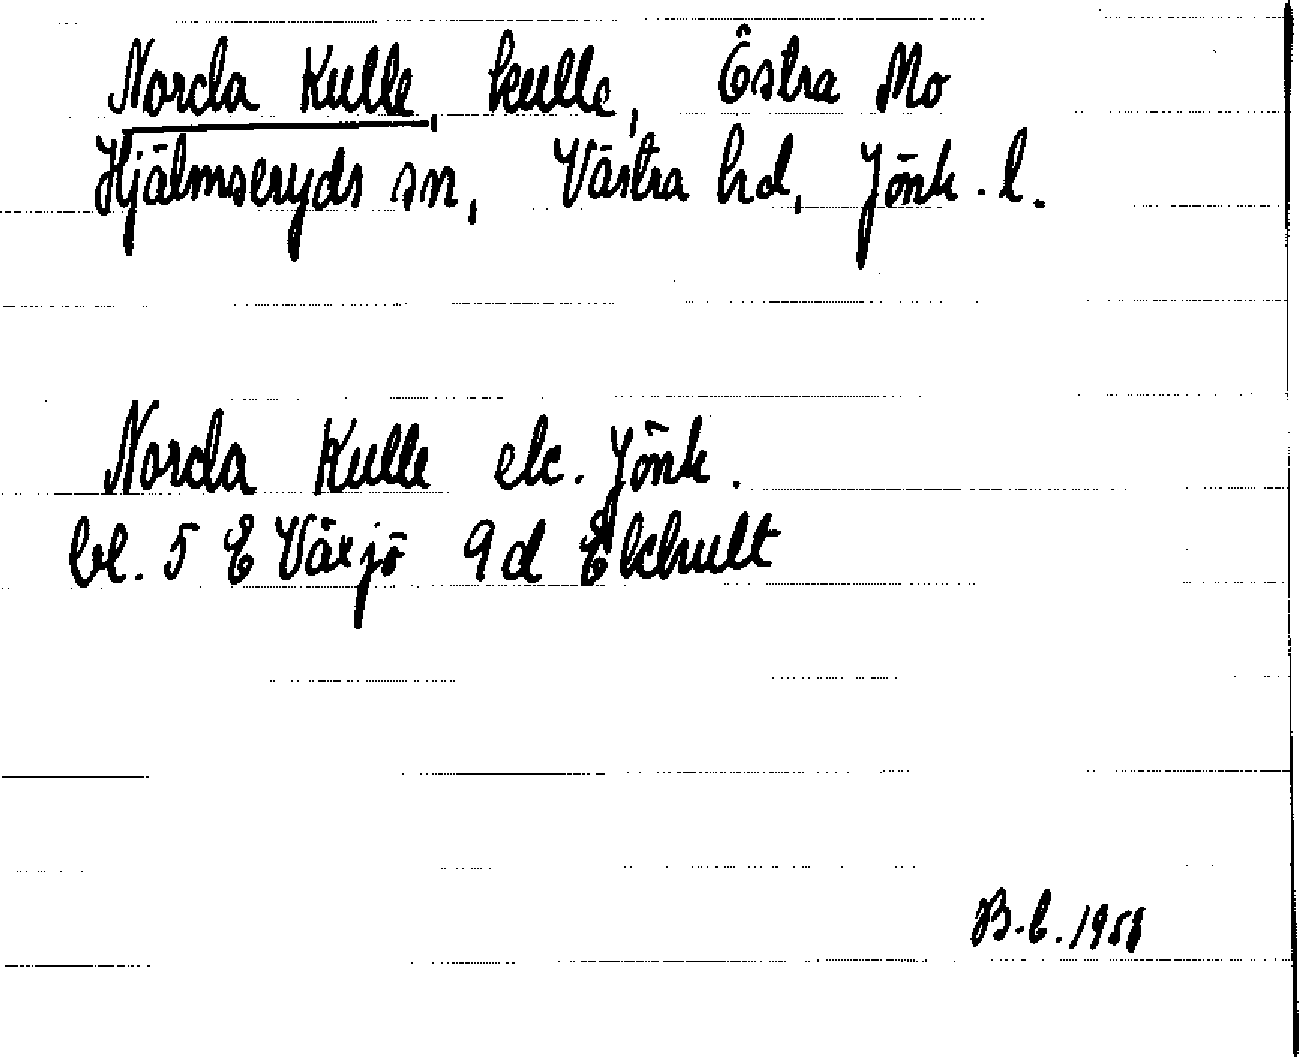 Norda Kulle, kulle, Östra Mo
Hjälmseryds sn, Västra hd, Jönk. l.
Norda Kulle ek. Jönk.
bl. 5 E Växjö 9d Ekhult
B. E. 1958